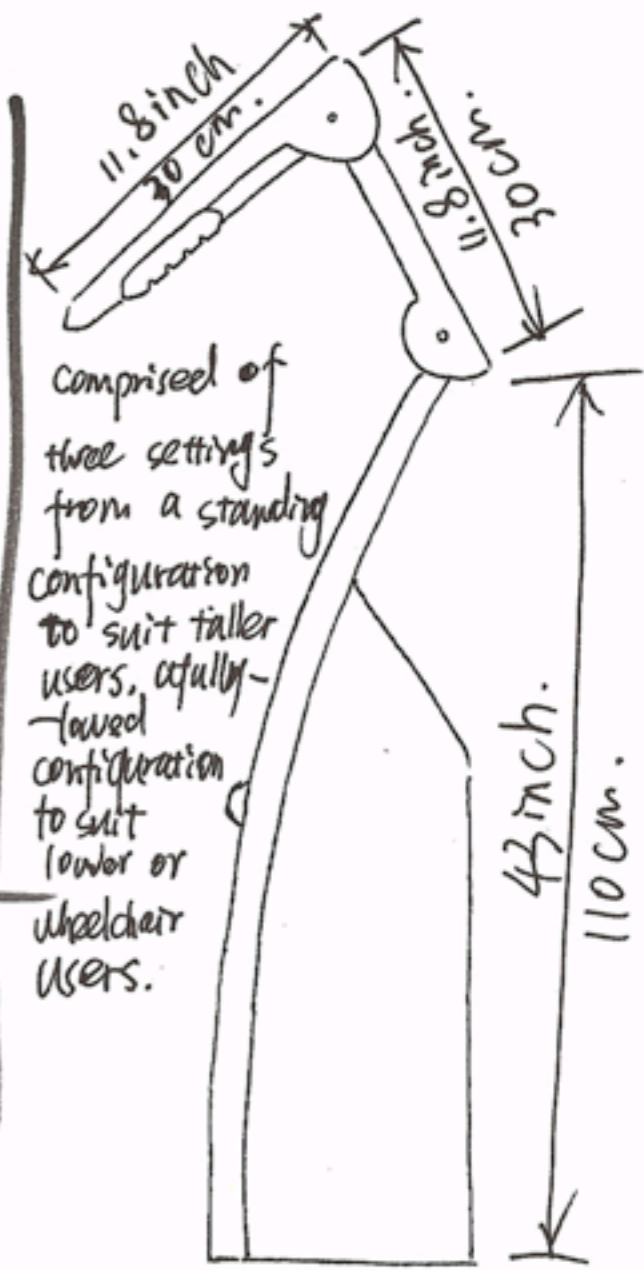 11.8inch
30 cm.
30cm.
11.8inch.
comprised of
three settings
from a standing
configuration
to suit taller
users. afully-
-lowed
configuration
to suit
lower or
wheelchair
users.
43inch.
110cm.